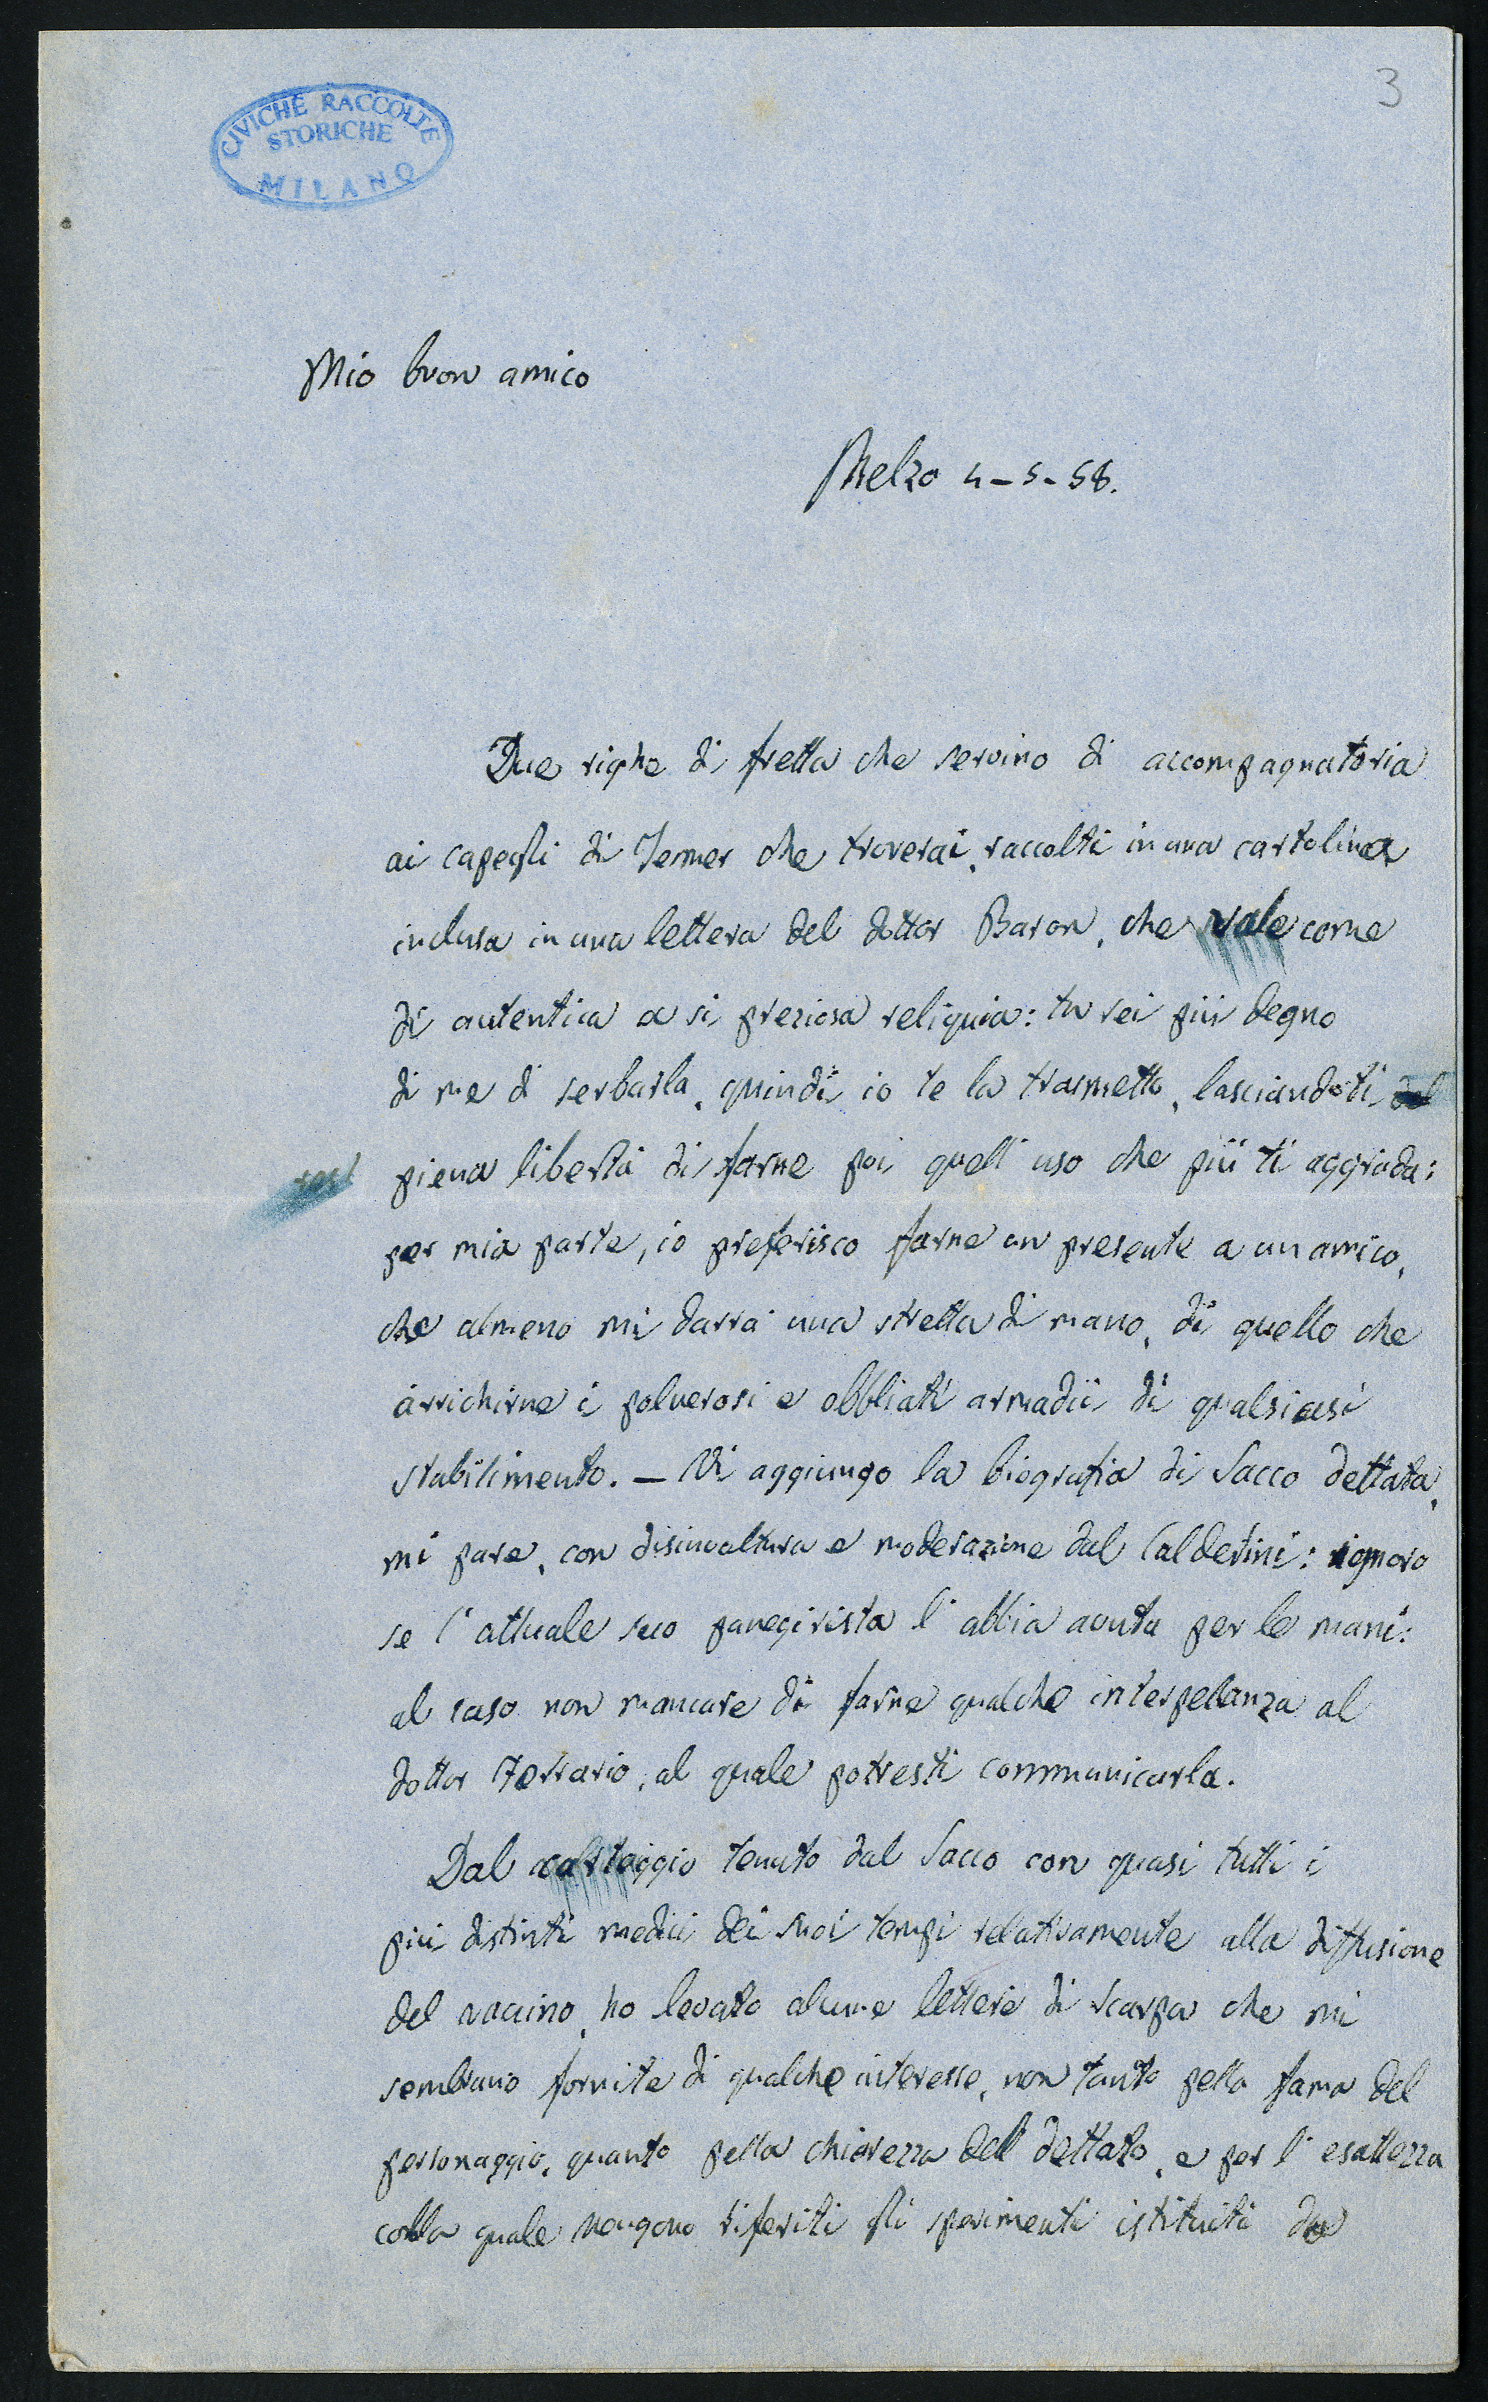 3
CIVICHE RACCOLTE
STORICHE
MILANO
Mio buon amico
Melzo 4-5-58.
Due righe di fretta che servino di accompagnatoria
ai capegli di Jenner che troverai, raccolti in una cartolina
inclusa in una lettera del dottor Baron, che vale come
di autentica a si preziosa reliquia: tu sei più degno
di me di serbarla, quindi io te la trasmetto, lasciandoti
piena libertà di farne poi quell'uso che più ti aggrada:
per mia parte, io preferisco farne un presente a un amico,
che almeno mi darrà una stretta di mano, di quello che
arrichirne i polverosi e obbliati armadii di qualsiasi
stabilimento. – Vi aggiungo la biografia di Sacco dettata,
mi pare, con disinvoltura e moderazione dal Calderini: ignoro
se l'attuale suo panegirista l'abbia avuta per le mani:
al caso non mancare di farne qualche interpelanza al
dottor Ferrario, al quale potresti communicarla.
Dal carteggio tenuto dal Sacco con quasi tutti i
più distinti medici dei suoi tempi relativamente alla diffusione
del vaccino, ho levato alcune lettere di Scarpa che mi
sembrano fornite di qualche interesse, non tanto pella fama del
personaggio, quanto pella chiarezza del dettato, e per l'esattezza
colla quale vengono riferiti gli sperimenti istituiti da